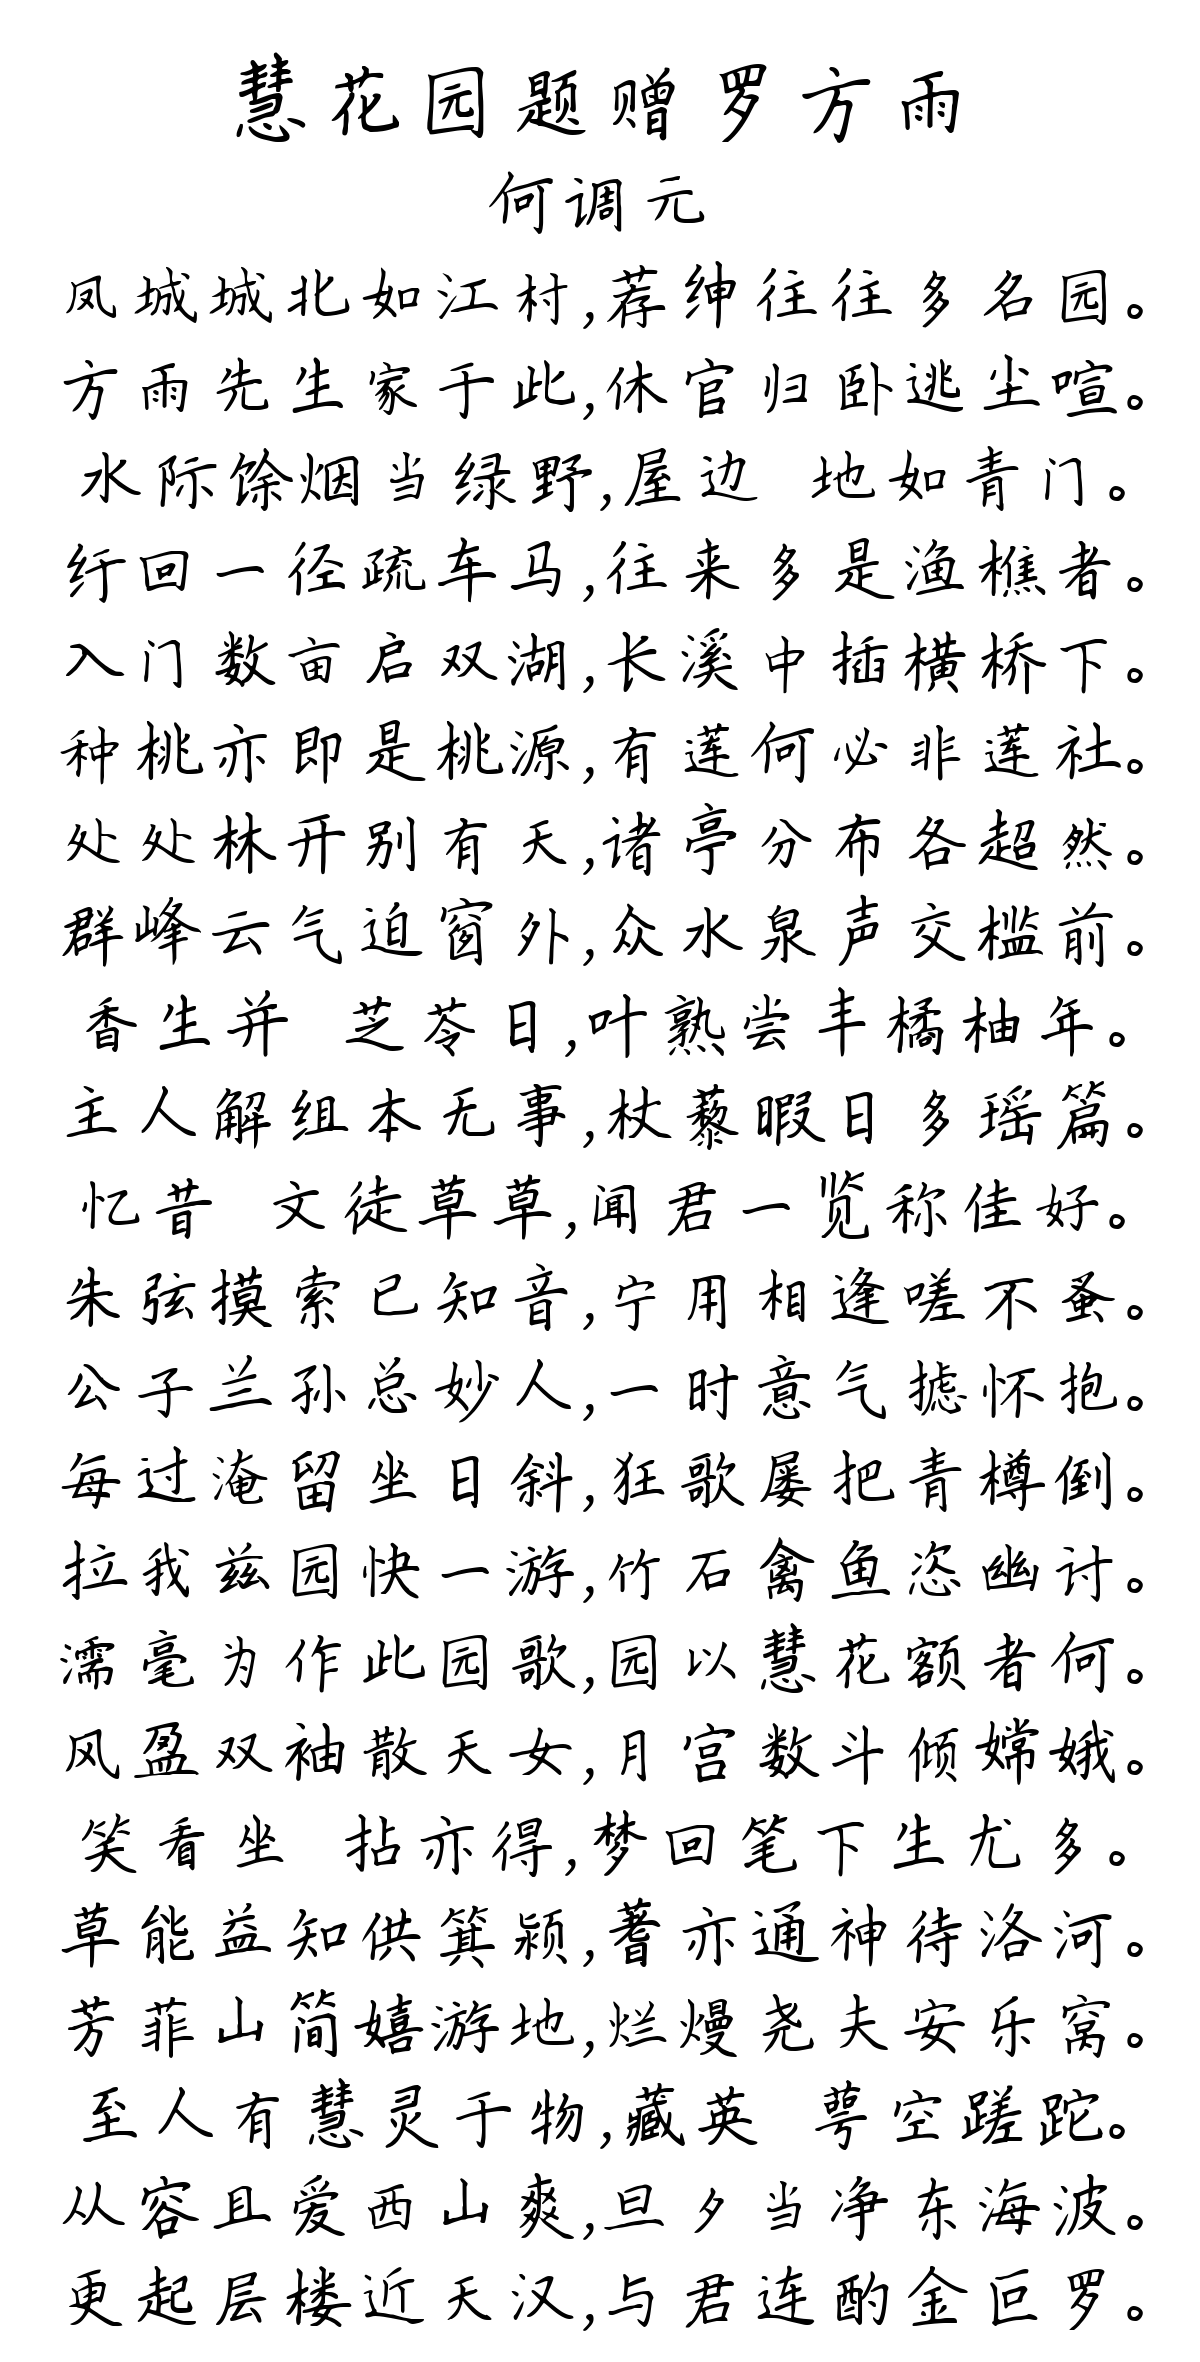 慧花园题赠罗方雨
何调元
凤城城北如江村,荐绅往往多名园。
方雨先生家于此,休官归卧逃尘喧。
水际馀烟当绿野,屋边 地如青门。
纡回一径疏车马,往来多是渔樵者。
入门数亩启双湖,长溪中插横桥下。
种桃亦即是桃源,有莲何必非莲社。
处处林开别有天,诸亭分布各超然。
群峰云气迫窗外,众水泉声交槛前。
香生并 芝苓日,叶熟尝丰橘柚年。
主人解组本无事,杖藜暇日多瑶篇。
忆昔 文徒草草,闻君一览称佳好。
朱弦摸索已知音,宁用相逢嗟不蚤。
公子兰孙总妙人,一时意气摅怀抱。
每过淹留坐日斜,狂歌屡把青樽倒。
拉我兹园快一游,竹石禽鱼恣幽讨。
濡毫为作此园歌,园以慧花额者何。
风盈双袖散天女,月宫数斗倾嫦娥。
笑看坐 拈亦得,梦回笔下生尤多。
草能益知供箕颍,蓍亦通神待洛河。
芳菲山简嬉游地,烂熳尧夫安乐窝。
至人有慧灵于物,藏英 萼空蹉跎。
从容且爱西山爽,旦夕当净东海波。
更起层楼近天汉,与君连酌金叵罗。